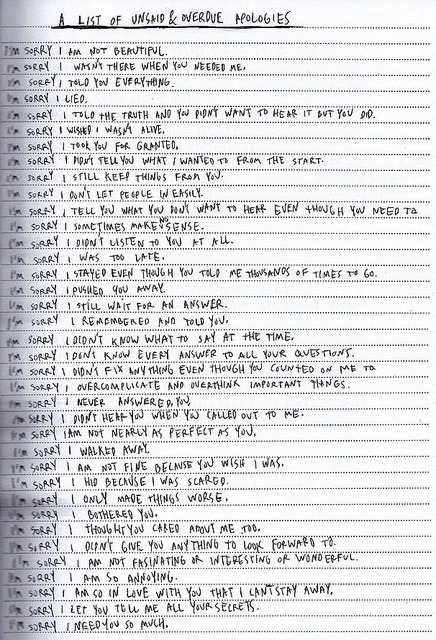 A LIST OF UNSAID & OVERDUE APOLOGIES
I'M SORRY I AM NOT BEAUTIFUL.
I'M SORRY I WASN'T THERE WHEN YOU NEEDED ME.
I'M SORRY I TOLD YOU EVERYTHING.
I'M SORRY I LIED.
I'M SORRY I TOLD THE TRUTH AND YOU DIDN'T WANT TO HEAR IT BUT YOU DID.
I'M SORRY I WISHED I WASN'T ALIVE.
I'M SORRY I TOOK YOU FOR GRANTED.
I'M SORRY I DIDN'T TELL YOU WHAT I WANTED TO FROM THE START.
I'M SORRY I STILL KEEP THINGS FROM YOU.
I'M SORRY I DON'T LET PEOPLE IN EASILY.
I'M SORRY I TELL YOU WHAT YOU DON'T WANT TO HEAR EVEN THOUGH YOU NEED TO
I'M SORRY I SOMETIMES MAKE NO SENSE.
I'M SORRY I DIDN'T LISTEN TO YOU AT ALL.
I'M SORRY I WAS TOO LATE.
I'M SORRY I STAYED EVEN THOUGH YOU TOLD ME THOUSANDS OF TIMES TO GO.
I'M SORRY I PUSHED YOU AWAY.
I'M SORRY I STILL WAIT FOR AN ANSWER.
I'M SORRY I REMEMBERED AND TOLD YOU.
I'M SORRY I DIDN'T KNOW WHAT TO SAY AT THE TIME.
I'M SORRY I DON'T KNOW EVERY ANSWER TO ALL YOUR QUESTIONS.
I'M SORRY I DIDN'T FIX ANYTHING EVEN THOUGH YOU COUNTED ON ME TO
I'M SORRY I OVERCOMPLICATE AND OVERTHINK IMPORTANT THINGS.
I'M SORRY I NEVER ANSWERED YOU.
I'M SORRY I DIDN'T HEAR YOU WHEN YOU CALLED OUT TO ME.
I'M SORRY I AM NOT NEARLY AS PERFECT AS YOU.
I'M SORRY I WALKED AWAY.
I'M SORRY I AM NOT FINE BECAUSE YOU WISH I WAS.
I'M SORRY I HID BECAUSE I WAS SCARED.
I'M SORRY I ONLY MADE THINGS WORSE.
I'M SORRY I BOTHERED YOU.
I'M SORRY I THOUGHT YOU CARED ABOUT ME TOO.
I'M SORRY I DIDN'T GIVE YOU ANYTHING TO LOOK FORWARD TO.
I'M SORRY I AM NOT FASINATING OR INTERESTING OR WONDERFUL.
I'M SORRY I AM SO ANNOYING.
I'M SORRY I AM SO IN LOVE WITH YOU THAT I CAN'T STAY AWAY.
I'M SORRY I LET YOU TELL ME ALL YOUR SECRETS.
I'M SORRY I NEED YOU SO MUCH.